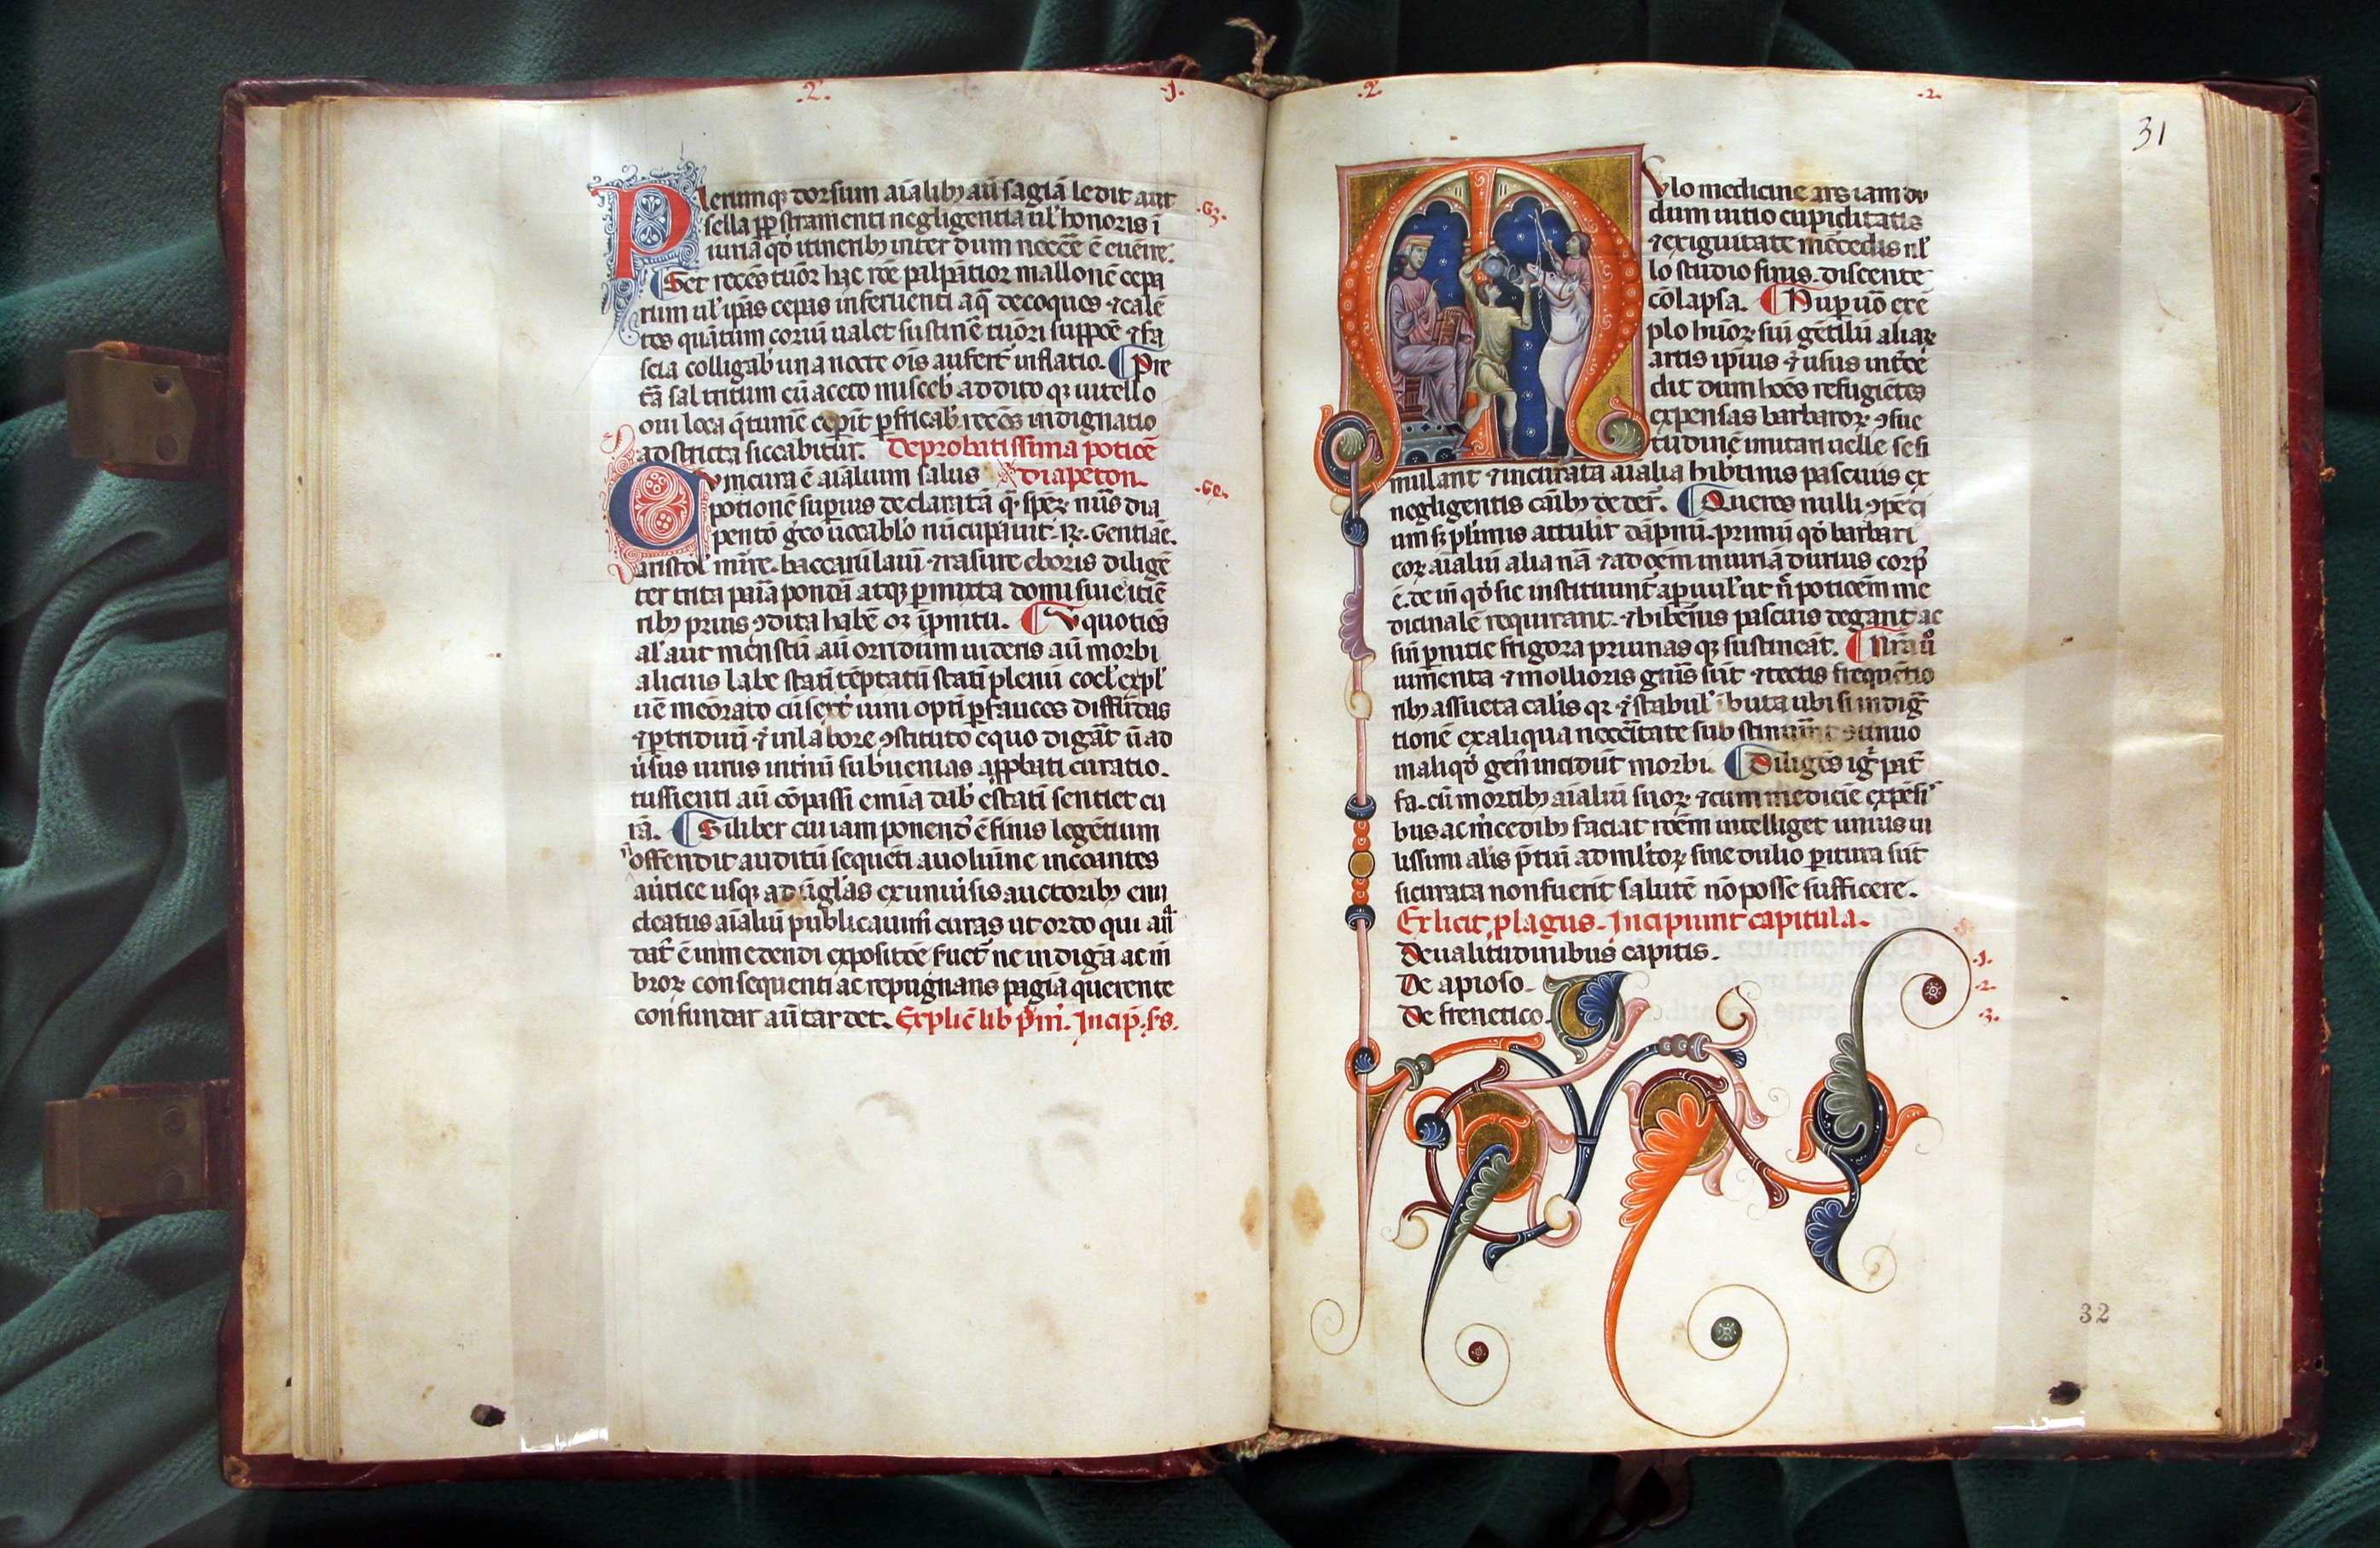 .2. .1.
Plerumq; dorsum aīalib; aū sagīa ledit aut
sella ꝑp stramenti negligentia ul' honoris i
iuriā qđ itinerib; inter dum necēe ē euēire.
Set recēs tuōr hac rōe palpātior mallonē cepa
rum ul' ip̄as cepas inferuenti aq̄ decoques ⁊ cale
tes quātum coriū ualet sustinē tuōri suppōe ⁊ fa
scia colligab' una nocte oīs aufert' inflatio. Pre
tā sal tritum cū aceto misceb' addito qꝫ uitello
oui loca q̄ tumē ceperīt ꝑfricab' recēs indignatio
adstricta siccabitur. De probatissima potiōe
diapenton.
.63.
Uincura ē aīalium salus
potionē superius declaratā q̄ spēꝝ nūs dia
pentō geō uocablo nūcupauit. ℞. Gentiāe.
aristol' mirre. baccarū lauri ⁊ rasure eboris dilige
ter trita paria pondā atqꝫ ꝑmixta domi siue itie
rib; prius ꝯdita habē oꝫ ip̄mitu. Ut quotiēs
al' aut menstū aū orridum uideris aū morbi
alicuius labe statī tēptatū statī plenū cocl' expl'
.64.
uē meōrato cū sext' uini optī ꝑ fauces diffūdas
⁊ ꝑ triduū ⁊ in labore ꝯstituto equo digāt ū ad
usus uirus intimī subuenias aꝓbati curatio.
tussienti aū cōpassi emīa dab' estati sentiet cu
rā. Si liber cui iam ponend' ē finis legētium
n̄ offendit auditū sequēti auolūine incoantes
a uertice usqꝫ ad ūglās ex uniuīsis auctorib; enu
cleatus aīaliū publicauim' curas ut ordo qui an̄
dat' ē in medendi expositiōe fuet' ne indigā ac in
broꝝ consequenti ac repugnans pagīa querente
confundat aū tardet. Explic̄ lib' p̄m'. Incip̄. s̄s.
.2. .2.
31
Mulo medicine ars iam du
dum uitio cupiditatis
⁊ exiguitate mēcedis nl'
lo studio finis. discente
cōlapsa. Nup uō exē
plo huiōꝝ siū gētiliū aliaꝝ
artis ipius ⁊ usus intēce
dit dum hoēs refugiētes
expensas barbaroꝝ ꝯsue
tudinē imitari uelle se si
mulant ⁊ incurata aīalia hibīnis pascuis ex
negligentis cāib; dedēt'. Que res nulli ꝯpēdi
um sꝫ plimis attulit dāpnū. primū qđ barbari
coꝝ aīaliū alia nā ⁊ ad oēm iniuriā durius corp̄'
ē. de in qđ sic instituunt' a puul' ut n̄ potiōem me
dicinalē requirant. ⁊ hibēnis pascuis degant ac
sin ꝑnitie frigora pruinas qꝫ sustineāt. Nr̄a ū
iumenta ⁊ mollioris gn̄is sūt ⁊ tectis frequētio
rib; assueta calis qꝫ ⁊ stabul' ībuta ubi si indig
tionē ex aliqua necc̄itate substinuīnt ꝯtinuo
in aliqđ gen' incidūt morbi. Diligēs igr̄ pat'
fa. cū mortib; aīaliū suoꝝ ⁊ cum medicīe expēsi
bus ac m̄cedib; faciat rōem intelliget unius ui
lissimi alis p̄tiū ad mltoꝝ sine dubio ꝑitura sūt
si curata non fuerīt salutē nō posse sufficere.
Exlicit, plagus. Incipiunt capitula.
De ualitudinibus capitis. .1.
De apioso. .2.
De frenetico. .3.
32